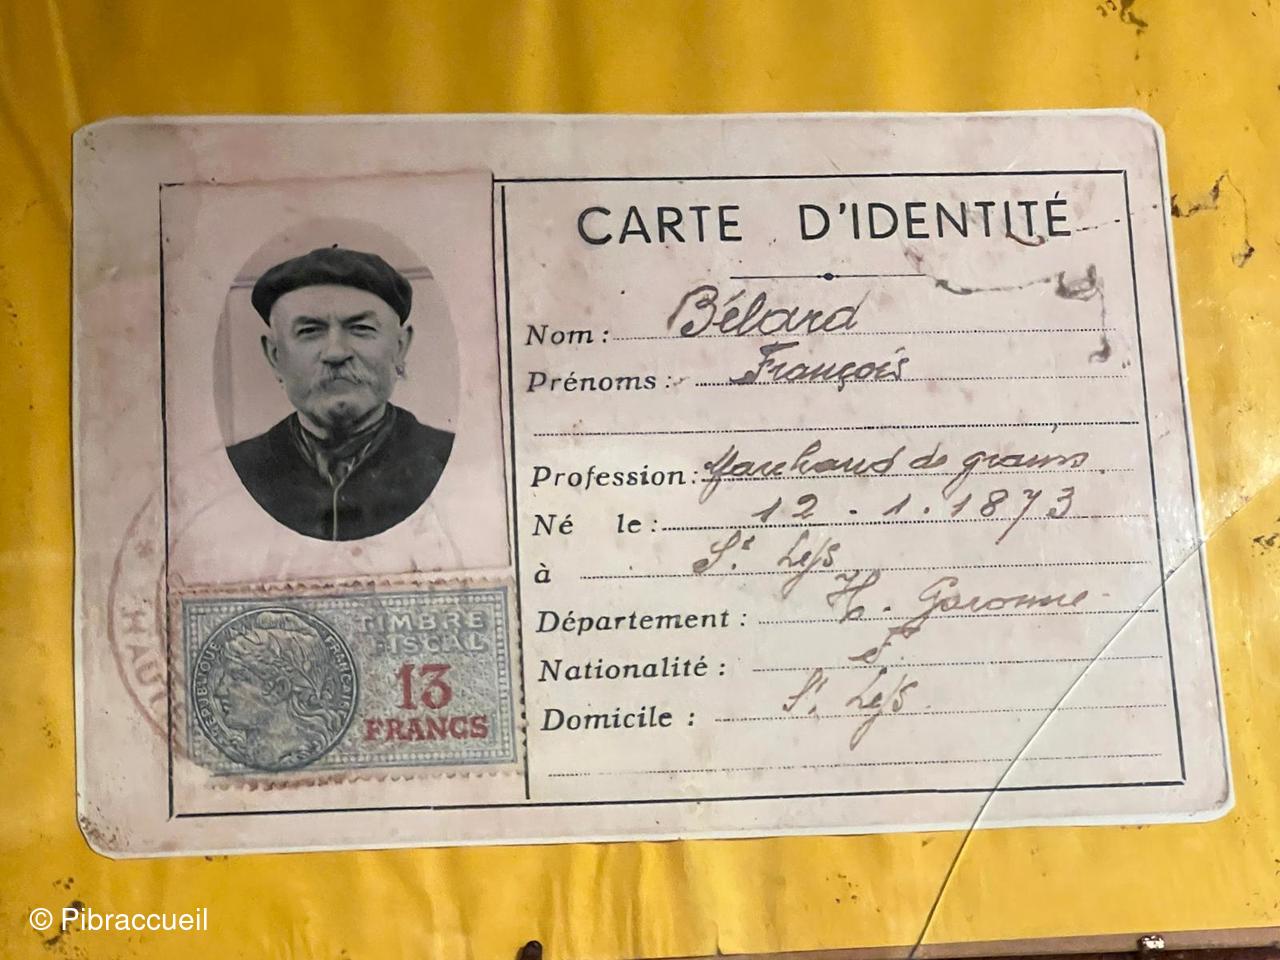 CARTE D'IDENTITÉ
Nom : Bélard
Prénoms : François
Profession : Marchand de grains
Né le : 12 . 1 . 1873
à St Lys
Département : H. Garonne
Nationalité : F.
Domicile : St. Lys
RÉPUBLIQUE FRANÇAISE
TIMBRE
FISCAL
13
FRANCS
HAUT
© Pibraccueil